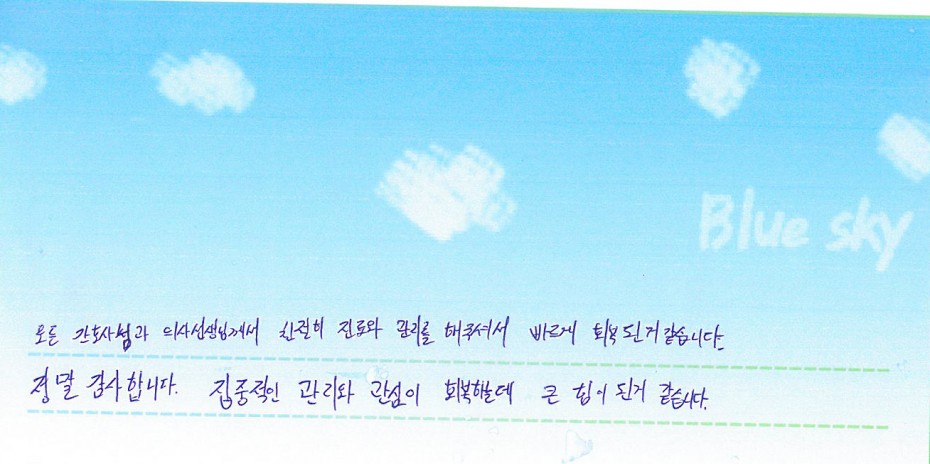 Blue sky
모든 간호사님과 의사선생님께서 친절히 진료와 관리를 해주셔서 빠르게 회복 된거 같습니다.
정말 감사합니다. 집중적인 관리와 관심이 회복하는데 큰 힘이 된거 같습니다.